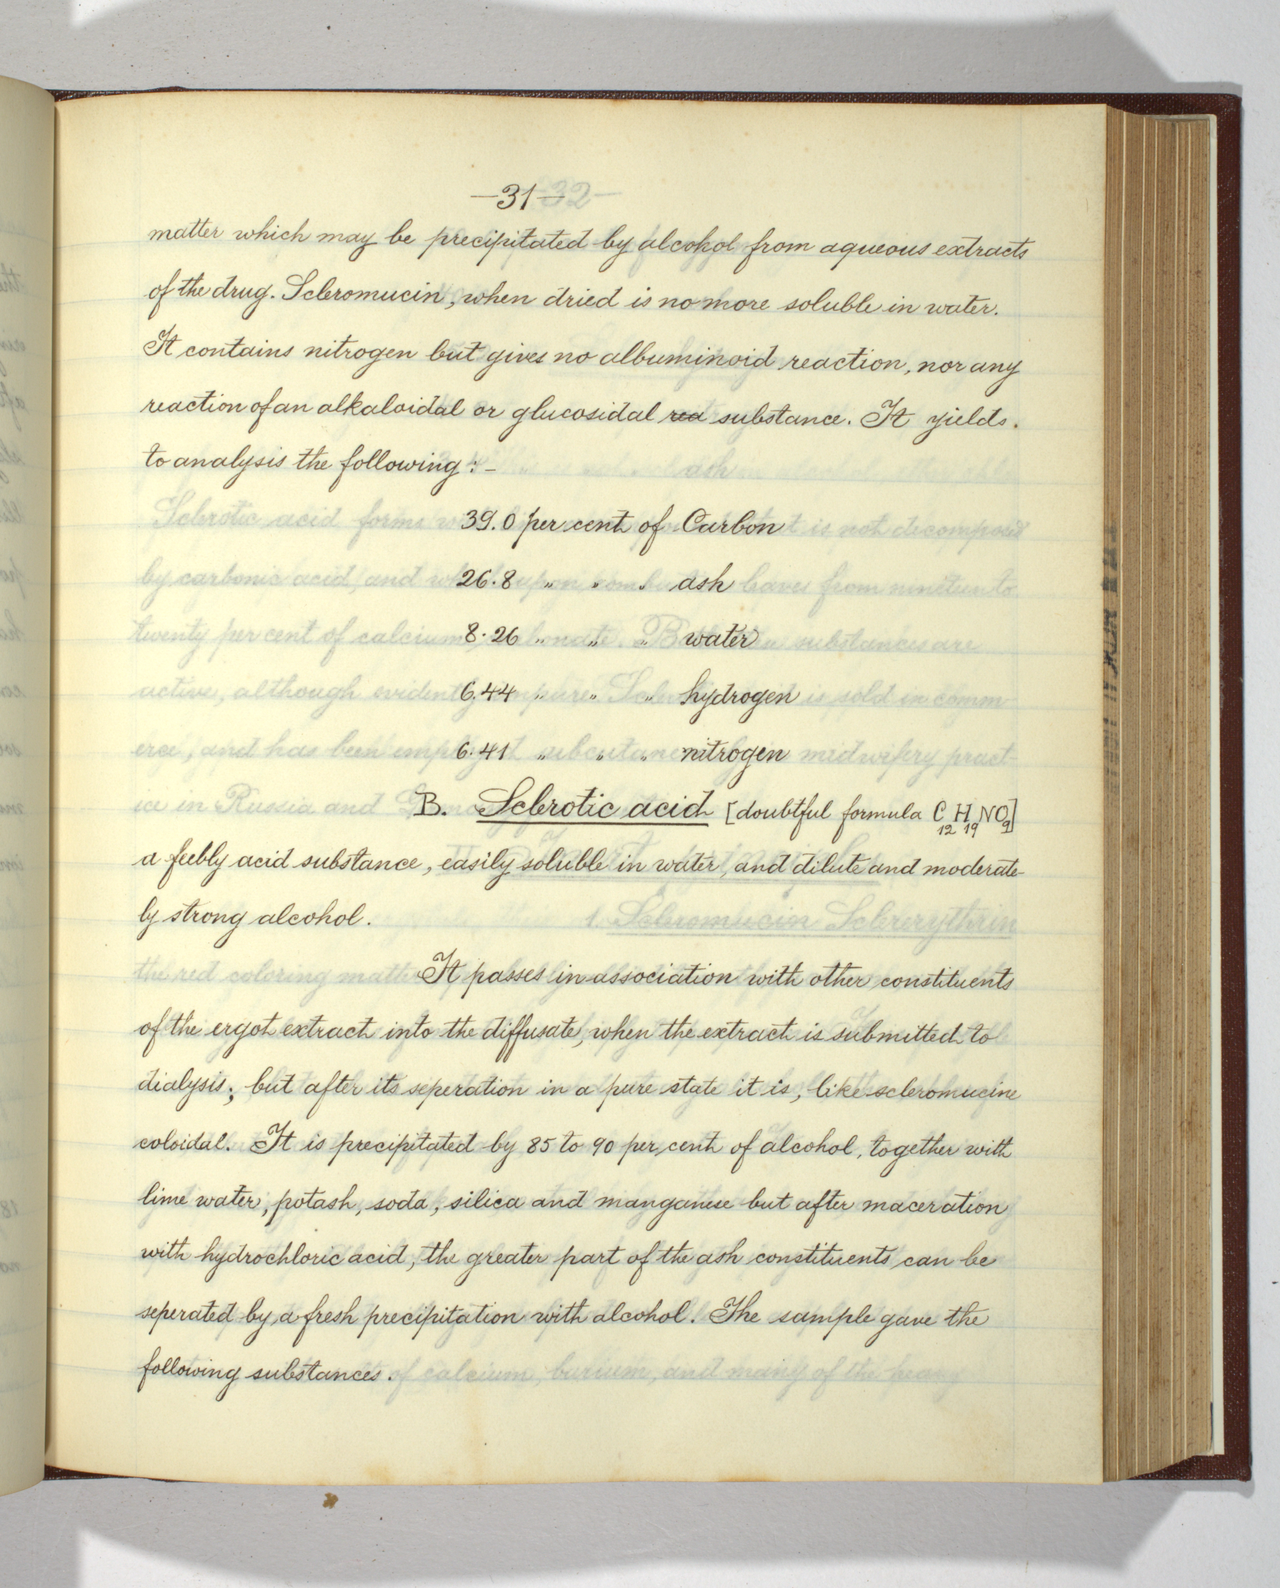 —31—
matter which may be precipitated by alcohol from aqueous extracts
of the drug. Scleromucin, when dried is no more soluble in water.
It contains nitrogen but gives no albuminoid reaction, nor any
reaction of an alkaloidal or glucosidal rea substance. It yields.
to analysis the following:-
39.0 per cent of Carbon
26.8 " " " ash
8.26 " " " water
6.44 " " " hydrogen
6.41 " " " nitrogen
B. Sclerotic acid [doubtful formula C12 H19 NO9]
a feebly acid substance, easily soluble in water, and dilute and moderate-
ly strong alcohol.
It passes in association with other constituents
of the ergot extract into the diffusate, when the extract is submitted to
dialysis; but after its seperation in a pure state it is, like scleromucine
coloidal. It is precipitated by 85 to 90 per cent of alcohol, together with
lime water, potash, soda, silica and manganese but after maceration
with hydrochloric acid, the greater part of the ash constituents can be
seperated by a fresh precipitation with alcohol. The sample gave the
following substances.